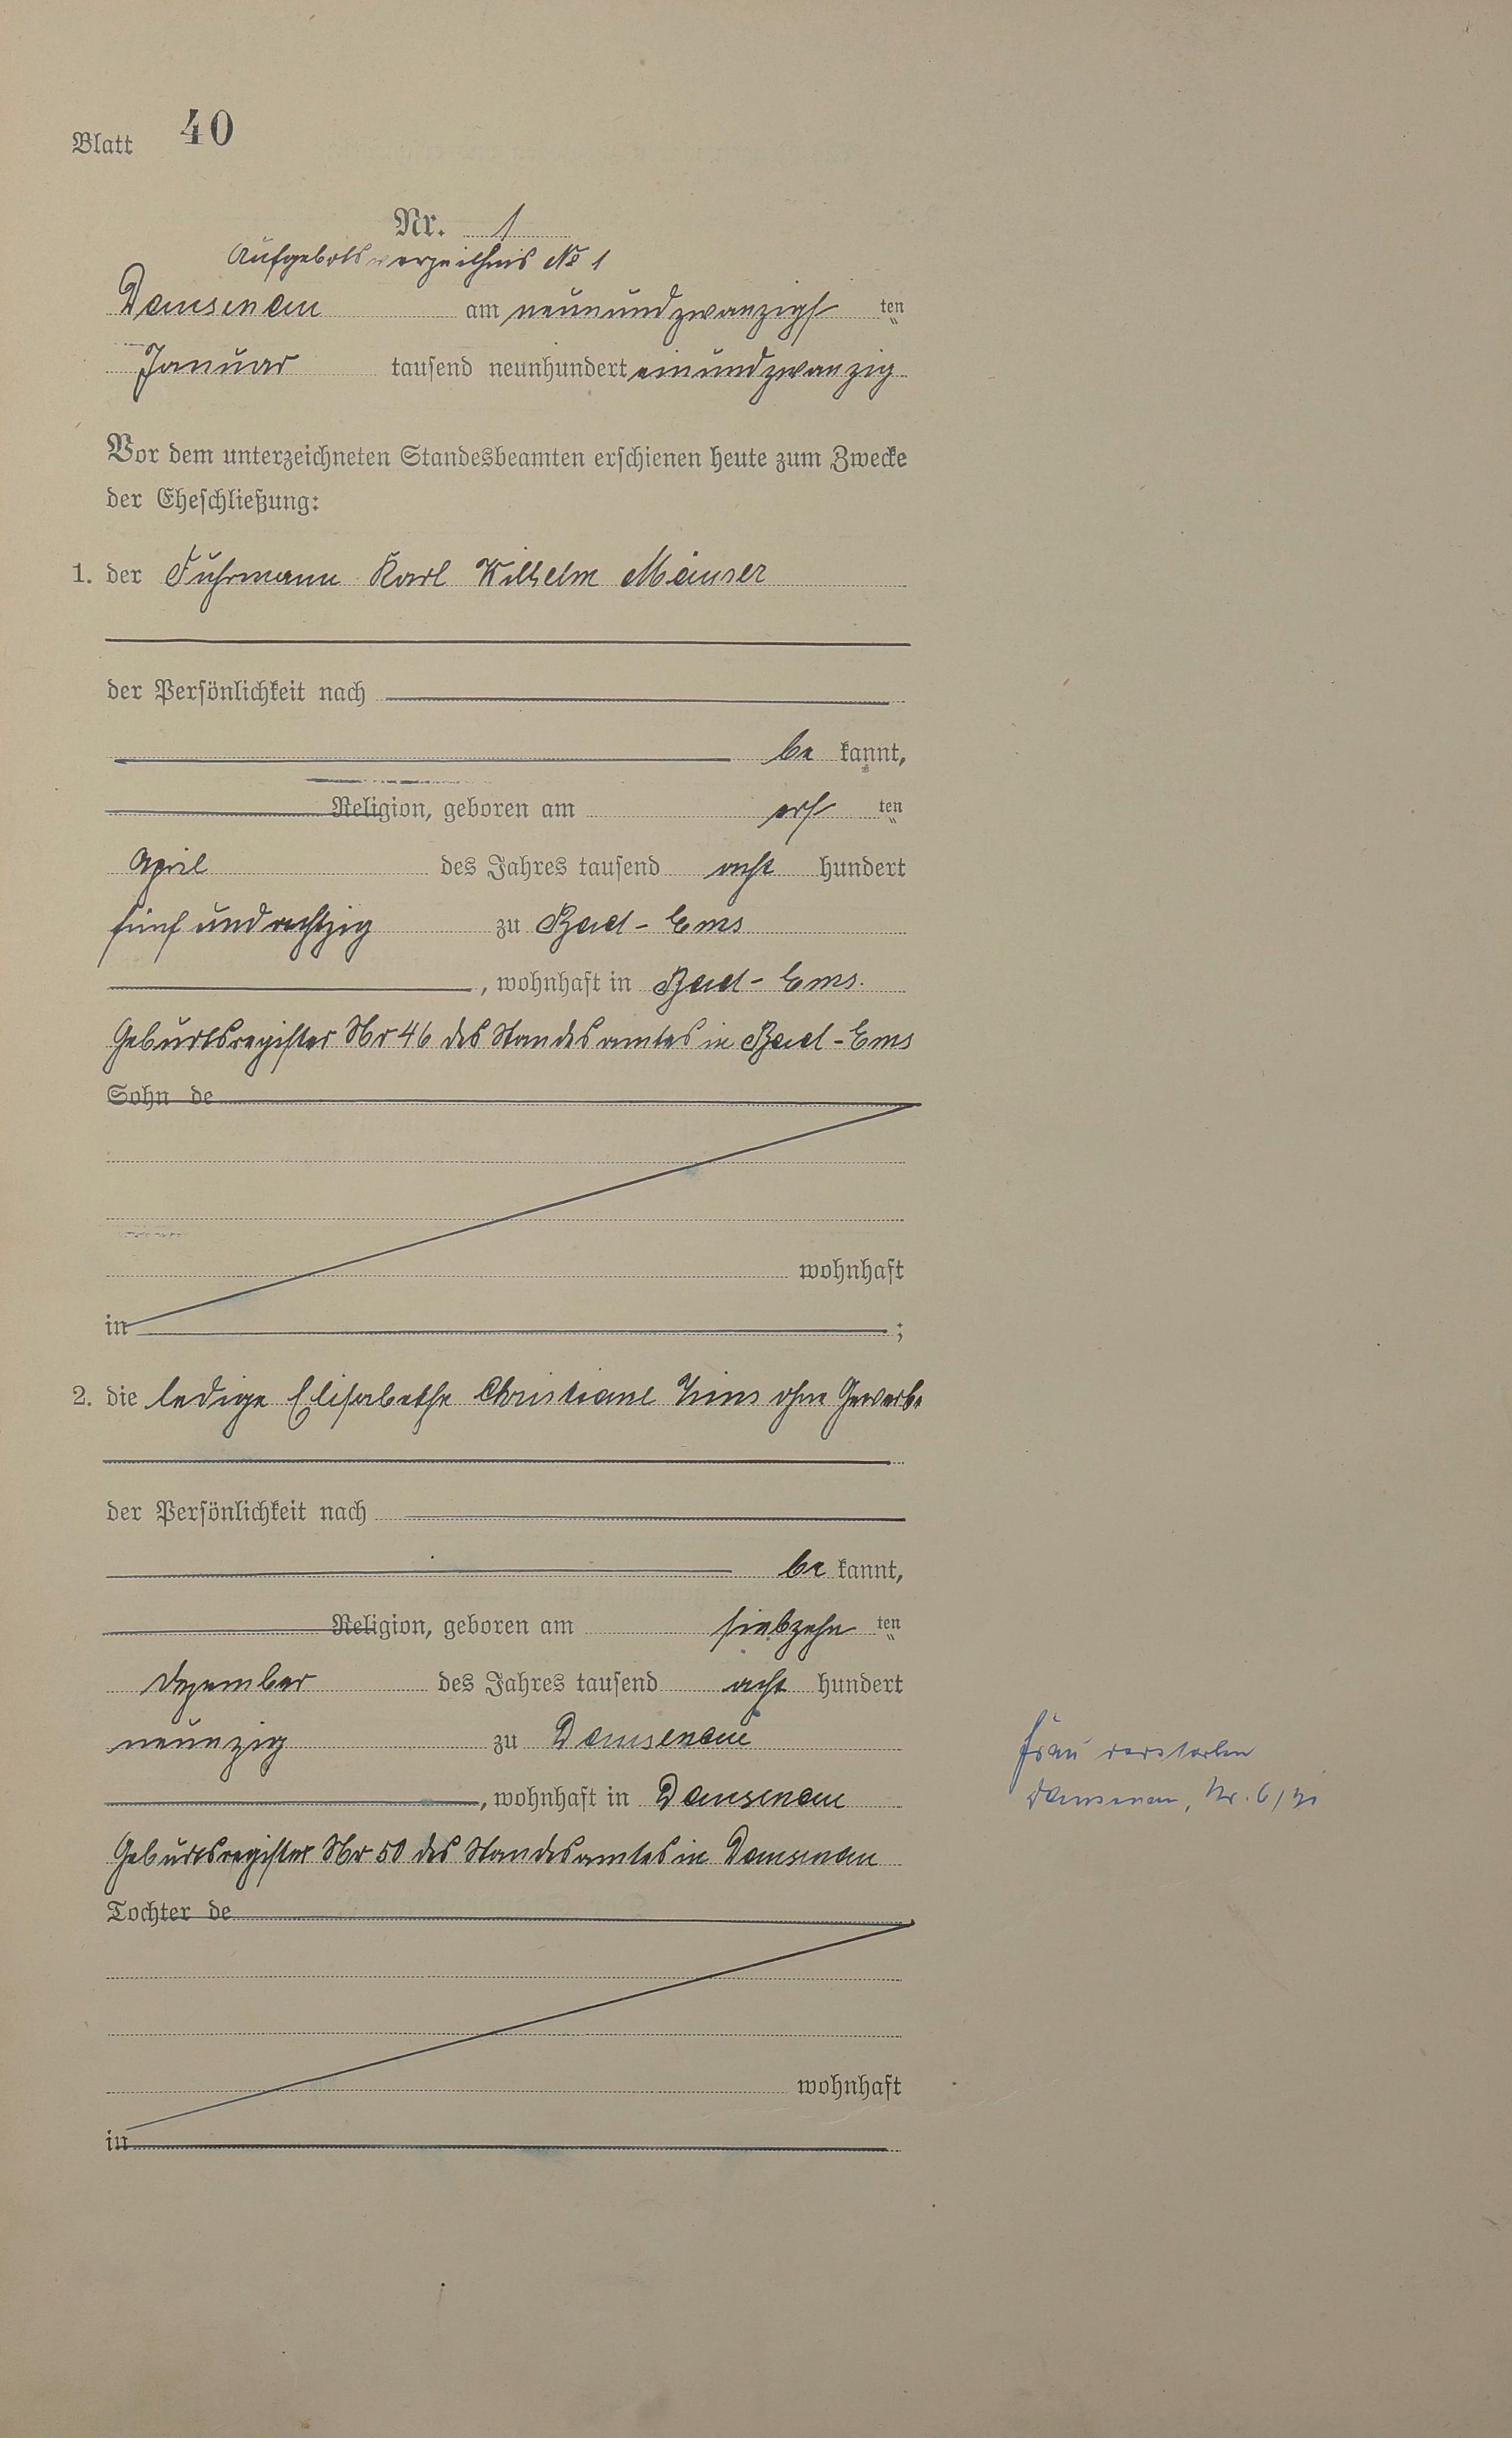 Blatt 40
Nr. 1
Aufgebotsverzeichnis No 1
Dausenau am neunundzwanzigsten
Januar tausend neunhundert einundzwanzig
Vor dem unterzeichneten Standesbeamten erschienen heute zum Zwecke
der Eheschließung:
1. der Fuhrmann Karl Wilhelm Mäuser
der Persönlichkeit nach
be kannt,
Religion, geboren am ersten
April des Jahres tausend acht hundert
fünf und achtzig zu Bad-Ems
, wohnhaft in Bad-Ems.
Geburtsregister Nr 46 des Standesamtes in Bad-Ems
Sohn de
wohnhaft
in ;
2. die ledige Elisabethe Christiane ohne Gewerbe
der Persönlichkeit nach
be kannt,
Religion, geboren am siebzehnten
Dezember des Jahres tausend acht hundert
neunzig zu Dausenau
, wohnhaft in Dausenau
Geburtsregister Nr 50 des Standesamtes in Dausenau
Tochter de
wohnhaft
in
Frau verstorben
Dausenau, Nr. 6/